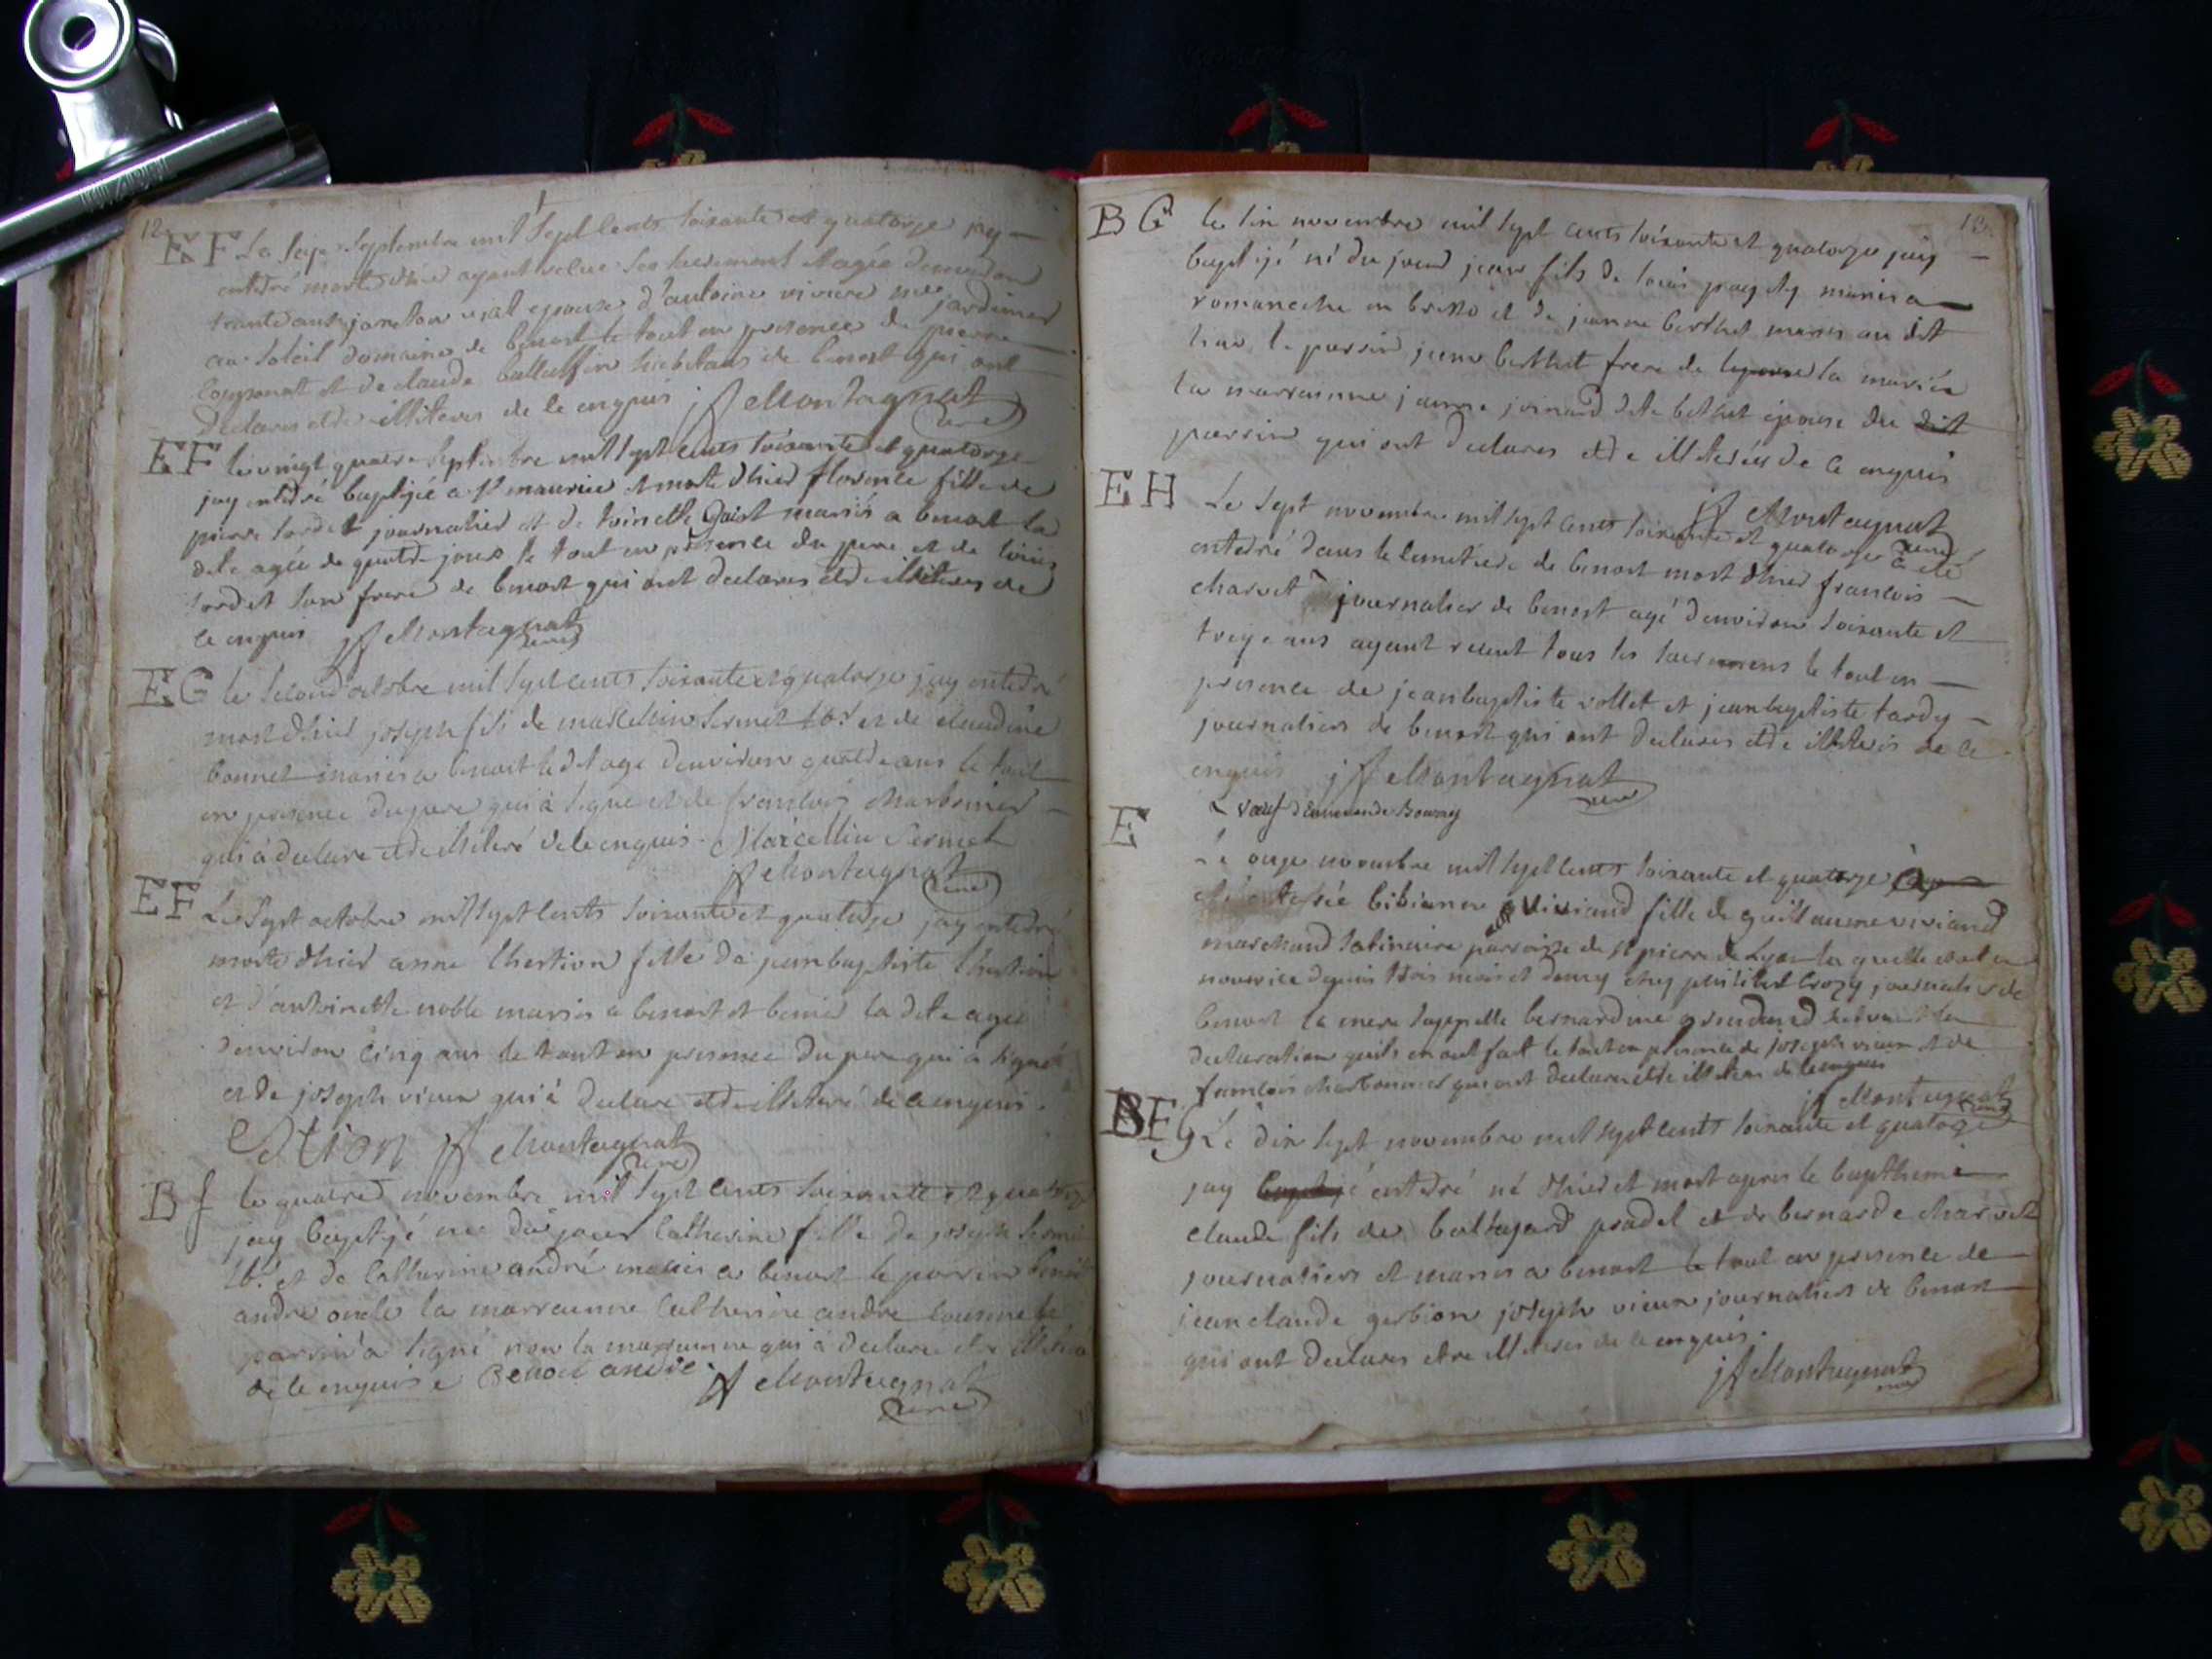 12
EF Le seze septembre mil sept cents soixante et quatorze jay
enterré morte dhier ayant recue les sacremens et agée denviron
trente ans janeton épouse d'antoine viviere jardinier
au soleil domaine de benost le tout en presence de pierre
et de claude habitans de benost qui ont
declares etre illiteres de ce enquis jf Montagnat
curé
EF le vingt quatre septembre mil sept cents soixante et quatorze
jay enterré baptizée a st maurice et morte dhier florence fille de
pierre tordet journalier et de toinette mariés a benost la
dite agée de quatre jours le tout en presence du pere et de
tordet son frere de benost qui ont declares etre illiteres de
ce enquis jf Montagnat
curé
EG le second octobre mil sept cents soixante et quatorze jay enterré
mort dhier joseph fils de marcellin sermet lbr et de claudine
bonnet mariés a benost le dit agé denviron quatre ans le tout
en presence du pere qui à signé et de francois charbonier
qui à declare etre illiteré de ce enquis Marcellin Sermet
jf Montagnat
curé
EF Le sept octobre mil sept cents soixante et quatorze jay enterré
morte dhier anne thertion fille de jean baptiste thertion
et d'antoinette noble mariés a benost et benié la dite agée
denviron cinq ans le tout en presence du pere qui à signé
et de joseph vieux qui à declare etre illiteré de ce enquis.
jf Montagnat
curé
Bf le quatre novembre mil sept cents soixante et quatorze
jay baptizé née du jour Catherine fille de joseph sermet
lbr et de Catherine andré mariés a benost le parrin benoit
andré oncle la marraine Catherine andre cousine le
parrin a signé non la marraine qui à declare etre illiterée
de ce enquise Benoit andre jf Montagnat
curé
13
BG le six novembre mil sept cents soixante et quatorze jay
baptizé né du jour jean fils de louis mariés a
romaneche en bresse et de jeanne berthet mariés au dit
lieu le parrin jean berthet frere de la mariée
la marraine jeanne joinard dite bethet épouse du dit
parrin qui ont declares etre illiterés de ce enquis
jf Montagnat
curé
EH Le sept novembre mil sept cents soixante et quatorze à été
enterré dans le cimetiere de benost mort dhier francois
charvet journalier de benost agé denviron soixante et
treize ans ayant recut tous les sacremens le tout en
presence de jean baptiste vollet et jean baptiste tardy
journaliers de benost qui ont declares etre illiterés de ce
enquis jf Montagnat
curé
veuf
E Le onze novembre mil sept cents soixante et quatorze à
été enterrée bibianne viviand fille de guillaume viviand
marchand parroisse de st pierre de Lyon la quelle etoit en
nourrice depuis trois mois et demy chez philibert Crozy journalier de
benost la mere sappelle bernardine suivant la
declaration quils en ont fait le tout en presence de joseph vieux et de
francois charbonnier qui ont declares etre illiteres de ce enquis
jf Montagnat
curé
BEG Le dix sept novembre mil sept cents soixante et quatorze
jay baptizé enterré né dhier et mort apres le baptheme
claude fils de baltazard pradel et de bernarde charvet
journaliers et mariés a benost le tout en presence de
jean claude gerbion joseph vieux journaliers de benost
qui ont declares etre illiteres de ce enquis.
jf Montagnat
curé